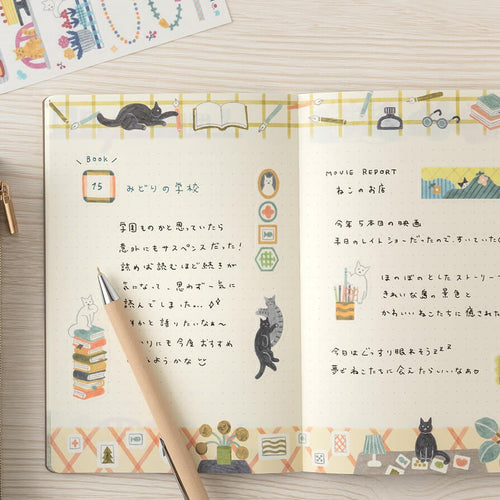 BOOK
15
みどりの学校
学園ものかと思っていたら
意外にもサスペンスだった!
読めば読むほど続きが
気になって、思わず一気に
読んでしまった…
かと語りたいなぁ〜
にも今度おすすめ
ようかな
MOVIE REPORT
ねこのお店
今年5本目の映画
本日のレイトショーだったので、すいていた
ほのぼのとしたストーリー
きれいな島の景色と
かわいいねこたちに癒された
今日はぐっすり眠れそうzzz
夢でねこたちに会えたらいいなぁ